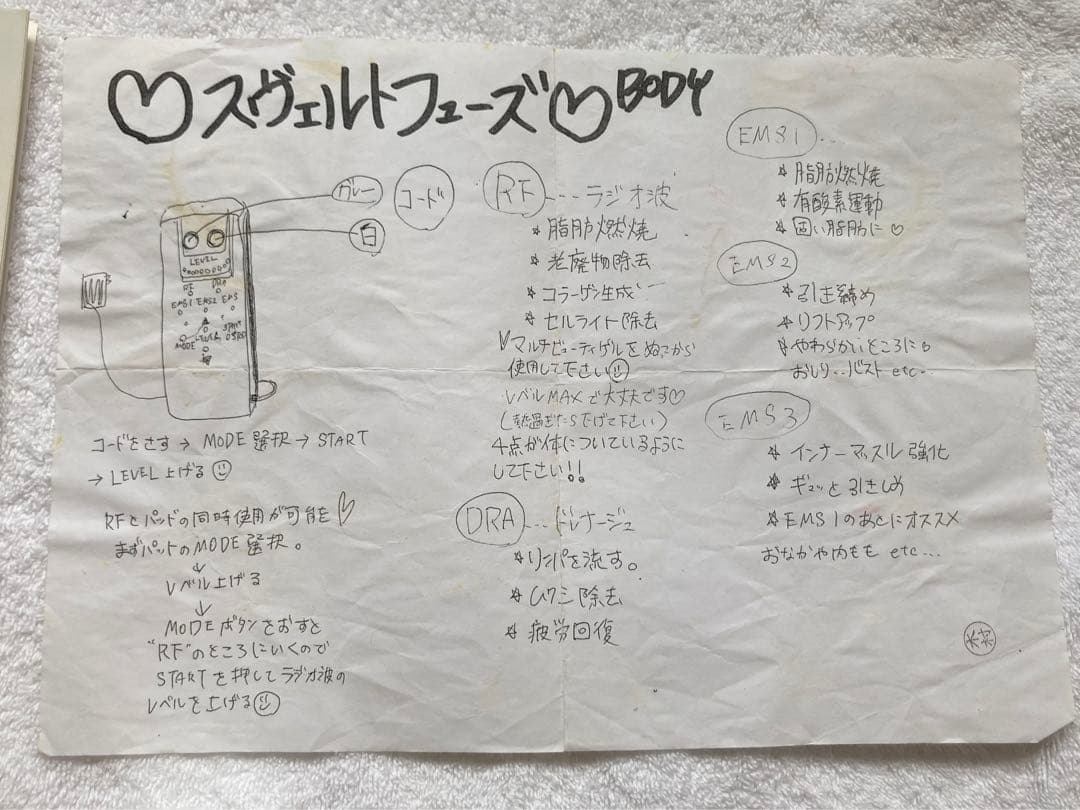 ♡スヴェルトフューズ♡BODY
グレー
コード
白
LEVEL
RF DRA
EMS1 EMS2 EMS
MODE LEVEL START
コードをさす→MODE選択→START
→LEVEL上げる
RFとパッドの同時使用が可能♡
まずパットのMODE選択。
↓
レベル上げる
↓
MODEボタンをおすと
"RF"のところにいくので
STARTを押してラジオ波の
レベルを上げる
RF...ラジオ波
☆脂肪燃焼
☆老廃物除去
☆コラーゲン生成
☆セルライト除去
♡マルチビューティゲルをぬってから
使用して下さい
レベルMAXで大丈夫です♡
(熱過ぎたら下げて下さい)
4点が体についているように
して下さい!!
DRA...ドレナージュ
☆リンパを流す。
☆ムクミ除去
☆疲労回復
EMS1...
☆脂肪燃焼
☆有酸素運動
☆固い脂肪に♡
EMS2
☆引き締め
☆リフトアップ
☆やわらかいところに♡
おしり..バスト etc...
EMS3
☆インナーマッスル強化
☆ギュッと引きしめ
☆EMS1のあとにオススメ
おなかや内もも etc...